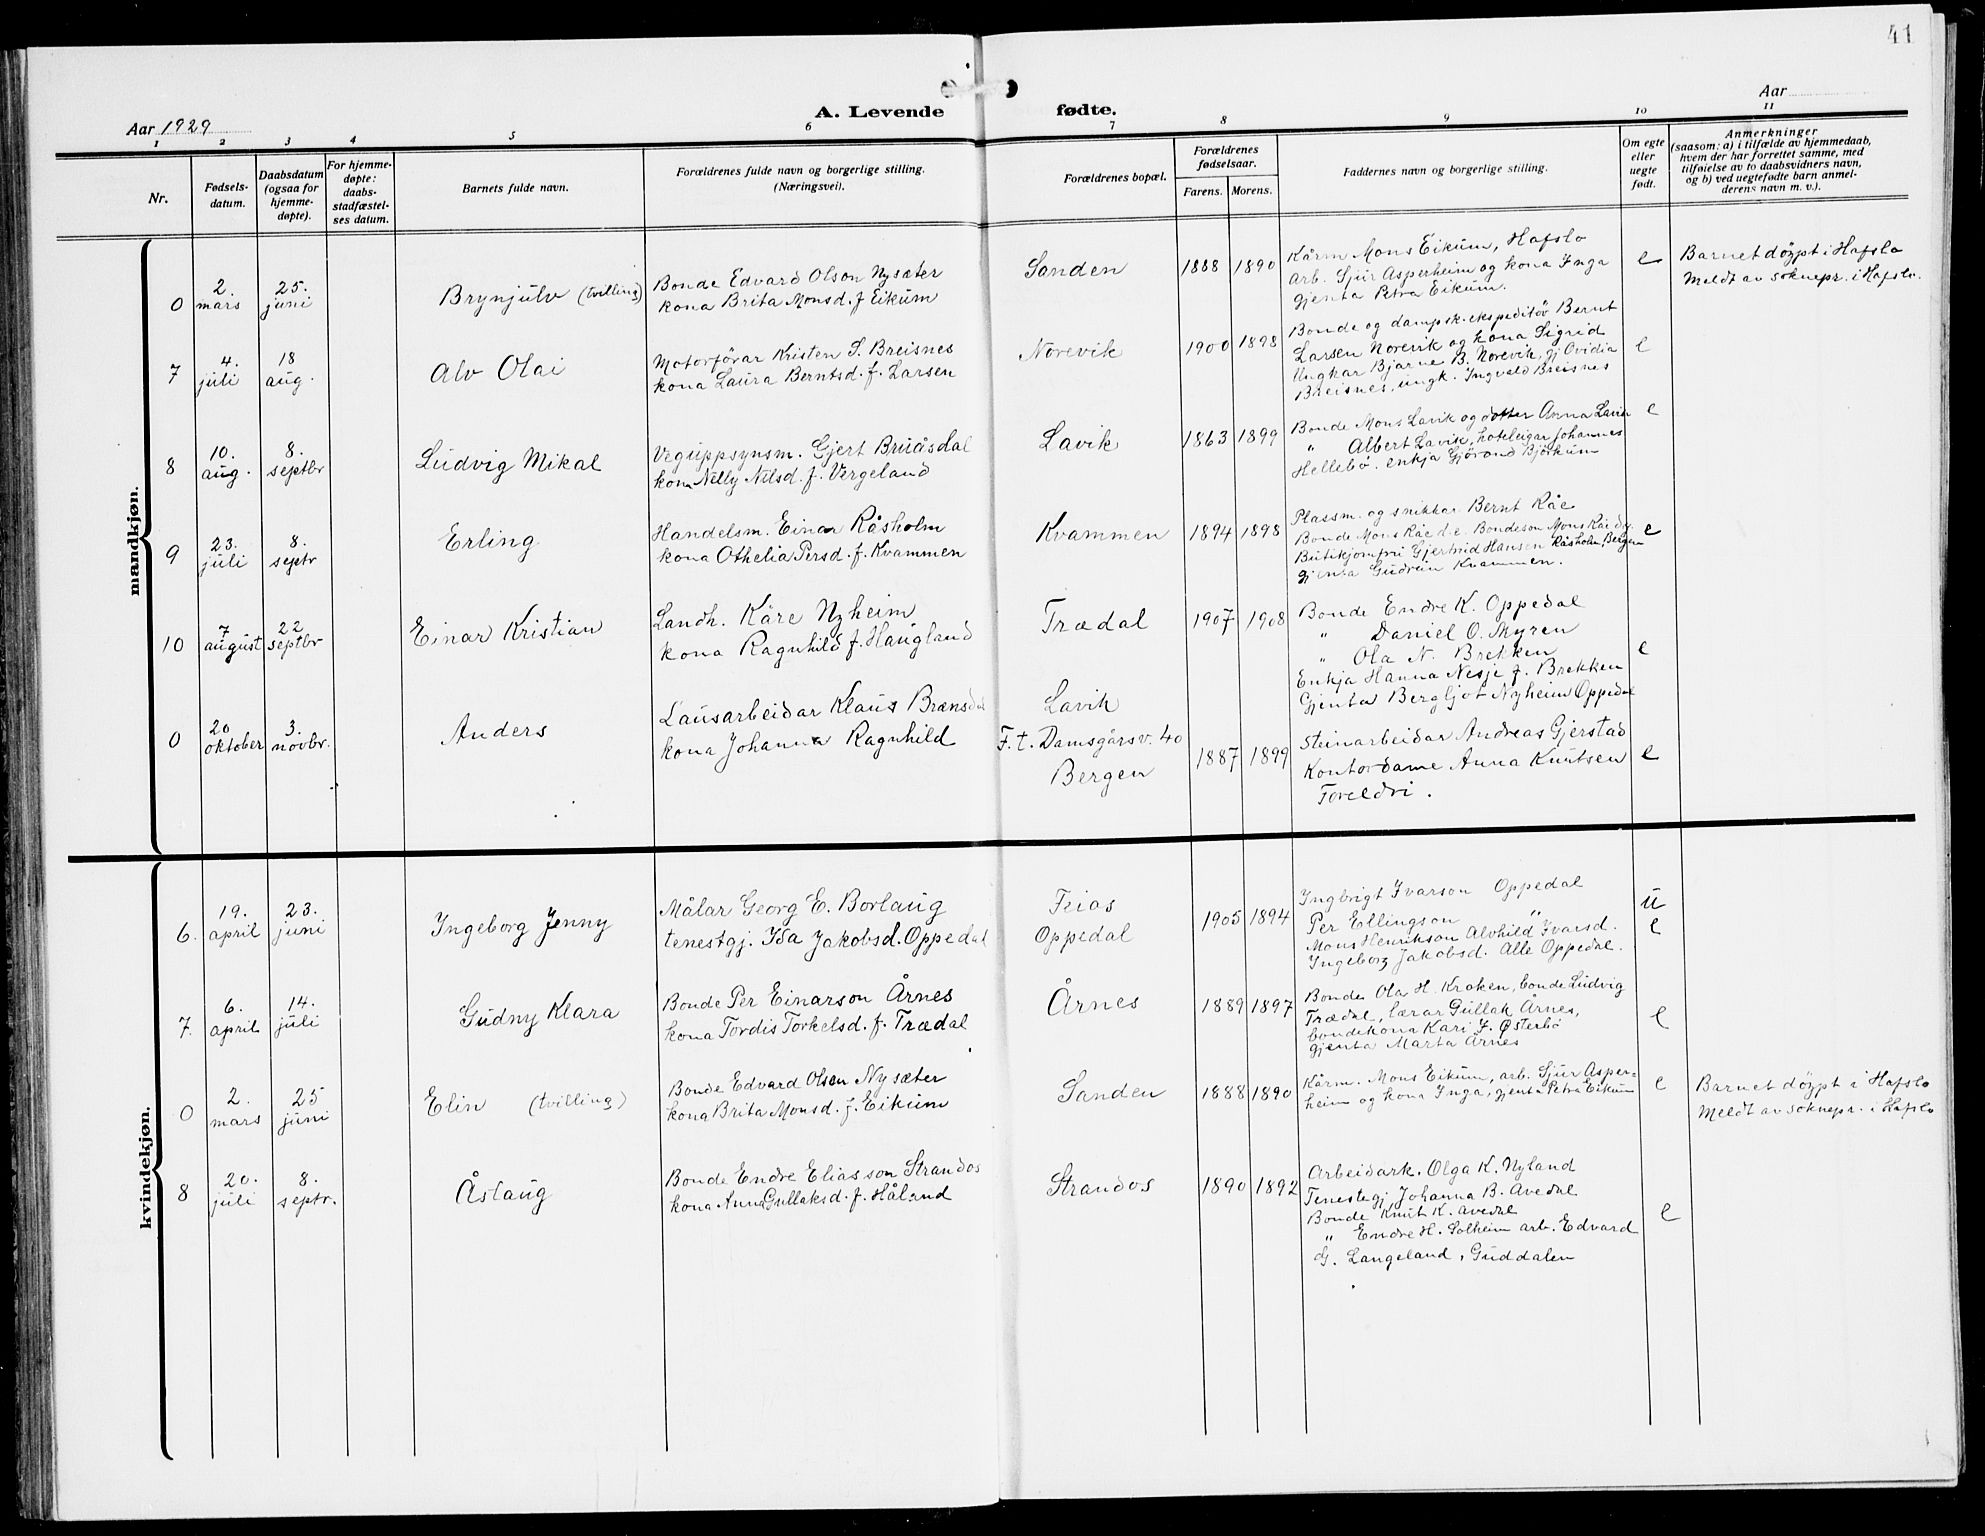 41
Aar 1929
A. Levende fødte.
Aar
1 2 3 4 5 6 7 8 9 10 11
Nr.
Fødsels-
datum.
Daabsdatum
(ogsaa for
hjemme-
døpte).
For hjemme-
døpte:
daabs-
stadfæstel-
ses datum.
Barnets fulde navn.
Forældrenes fulde navn og borgerlige stilling.
(Næringsvei).
Forældrenes bopæl.
Forældrenes
fødselsaar.
Farens. Morens.
Faddernes navn og borgerlige stilling.
Om egte
eller
uegte
født.
Anmerkninger
(saasom: a) i tilfælde av hjemmedaab,
hvem der har forrettet samme, med
tilføielse av to daabsvidners navn,
og b) ved uegtefødte barn anmel-
derens navn m. v.).
mandkjøn.
0
2.
mars
25.
juni
Brynjulv (tvilling)
Bonde Edvard Olson Nysæter
kona Brita Monsd. f Eikum
Sanden
1888 1890
Kårm Mons Eikum, Hafslo
arb. Sjur Asperheim og kona Inga
gjenta Petra Eikum.
e
Barnet døypt i Hafslo
Meldt av soknepr. i Hafslo.
7
4.
juli
18
aug.
Alv Olai
Motorførar Kristen S. Breisnes
kona Laura Berntsd. f. Larsen
Norevik
1900 1898
Bonde og dampsk.ekspeditör Bernt
Larsen Norevik og kona Sigrid
Ungkar Bjarne B. Norevik, gj Ovidia
Breisnes, ungk. Ingvald Breisnes
e
8
10.
aug.
8.
septbr
Ludvig Mikal
Veguppsynsm. Gjert Bruåsdal
kona Nelly Nilsd. f. Vergeland
Lavik
1863 1899
Bonde Mons Lavik og dotter Anna Lavik
" Albert Lavik, hoteleigar Johannes
Hellebø. enkja Gjørond Bjørkum
e
9
23.
juli
8.
septr
Erling
Handelsm. Einar Råsholm
kona Othelia Persd. f. Kvammen
Kvammen
1894 1898
Plassm. og snikkar Bernt Råe
Bonde Mons Råe d.e. Bondeson Mons Råe d.y.
Butikjomfru Gjertrud Hansen Råsholm, Bergen
gjenta Gudrun Kvammen.
e
10
7
august
22
septbr
Einar Kristian
Landh. Kåre Nyheim
kona Ragnhild f. Haugland
Trædal
1907 1908
Bonde Endre K. Oppedal
" Daniel O. Myren
" Ola N. Brekken
Enkja Hanna Nesje f. Brekken
Gjenta Bergljot Nyheim Oppedal
e
0
20
oktober
3.
novbr.
Anders
Lausarbeidar Klaus Brænsdal
kona Johanna Ragnhild
Lavik
F. t. Damsgårsv. 40
Bergen
1887 1899
Steinarbeidar Andreas Gjerstad
Kontordame Anna Knutsen
Foreldri.
e
kvindekjøn.
6.
19.
april
23.
juni
Ingeborg Jenny
Målar Georg E. Borlaug
tenestgj. Ida Jakobsd. Oppedal
Feios
Oppedal
1905 1894
Ingbrigt Ivarson Oppedal
Per Ellingson "
Mons Henrikson Alvhild Ivarsd.
Ingeborg Jakobsd. Alle Oppedal.
u
e
7.
6.
april
14.
juli
Gudny Klara
Bonde Per Einarson Årnes
kona Tordis Torkelsd. f. Trædal
Årnes
1889 1897
Bonde Ola H. Kroken, bonde Ludvig
Trædal, lærar Gullak Årnes,
bondekona Kari J. Østerbø
gjenta Marta Årnes
e
0
2.
mars
25
juni
Elin (tvilling)
Bonde Edvard Olsen Nysæter
kona Brita Monsd. f. Eikum
Sanden
1888 1890
Kårm. Mons Eikum, arb. Sjur Asper=
heim og kona Inga, gjenta Petra Eikum
e
Barnet døypt i Hafslo
Meldt av soknepr. i Hafslo
8
20.
juli
8.
septr.
Åslaug
Bonde Endre Eliasson Strandos
kona Anna Gullaksd. f. Håland
Strandos
1890 1892
Arbeidark. Olga K. Nyland
Tenestegj Johanna B. Avedal
Bonde Knut K. Avedal
" Endre H. Solheim arb. Edvard
G. Langeland, Guddalen
e